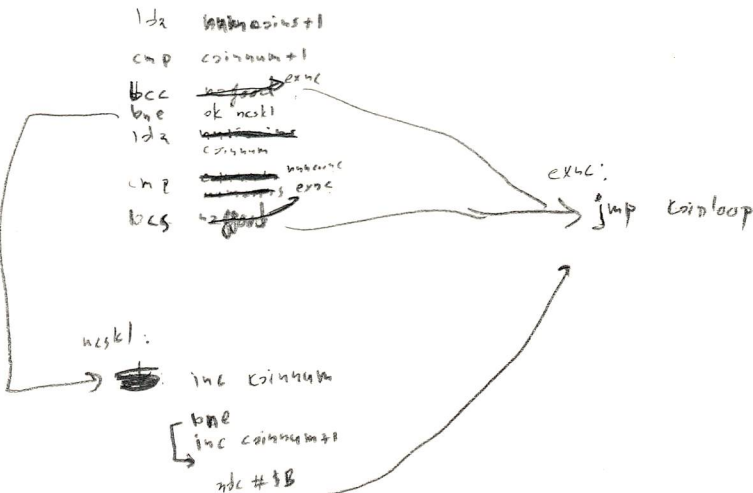 lda numcoins+1
cmp coinnum+1
bcc exnc
bne ok ncskl
lda
coinnum
cmp
exnc
bcs
exnc:
jmp coinloop
ncskl:
inc coinnum
bne
inc coinnum+1
adc #$B